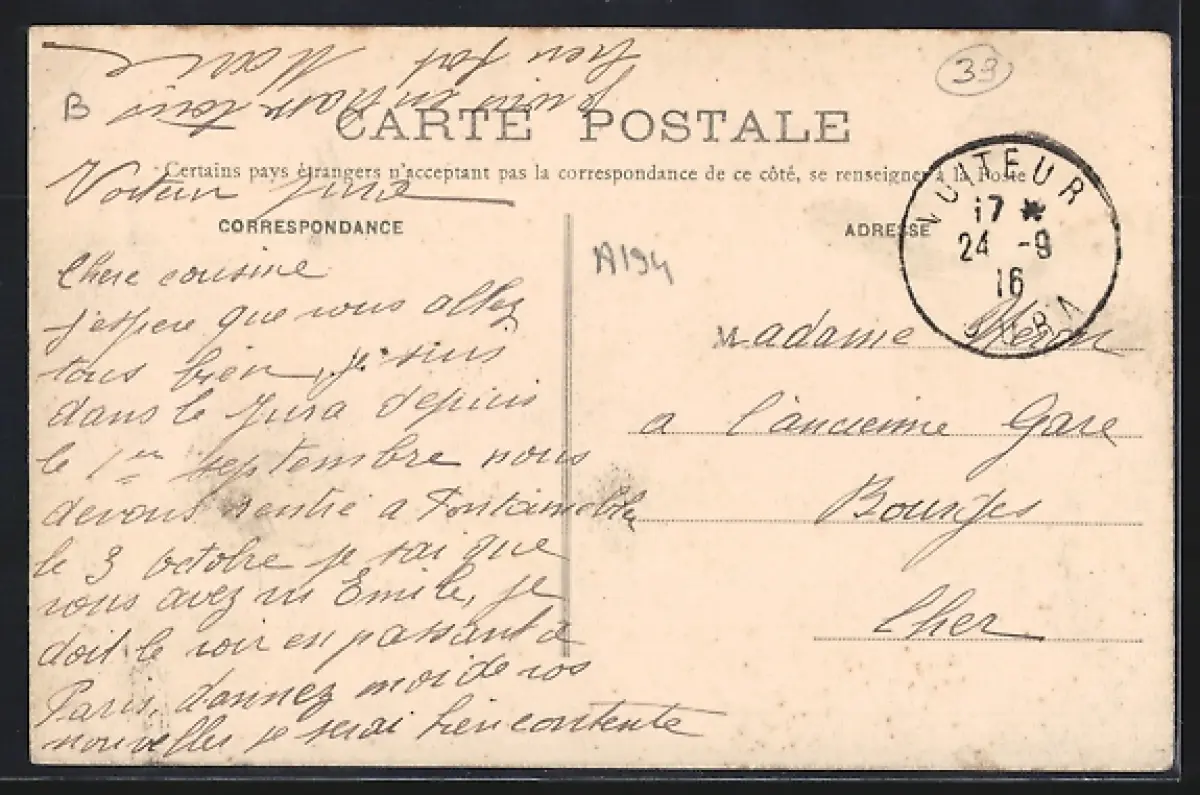 B
39
CARTE POSTALE
Certains pays étrangers n'acceptant pas la correspondance de ce côté, se renseigner à la Poste
Voiteur Jura
CORRESPONDANCE
ADRESSE
VOITEUR
17 *
24 -9
16
JURA
A194
Chere cousine
j'espere que vous allez
tous bien, je suis
dans le Jura depuis
le 1er septembre nous
devons rentre a Fontainebleu
le 3 octobre je sai que
vous avez vu Emile, je
doit le voir en passant à
Paris, donnez moi de vos
nouvelles je serai bien contente
Je vous embrasse tous
bien fort Marie
Madame
a l'ancienne Gare
Bourges
Cher